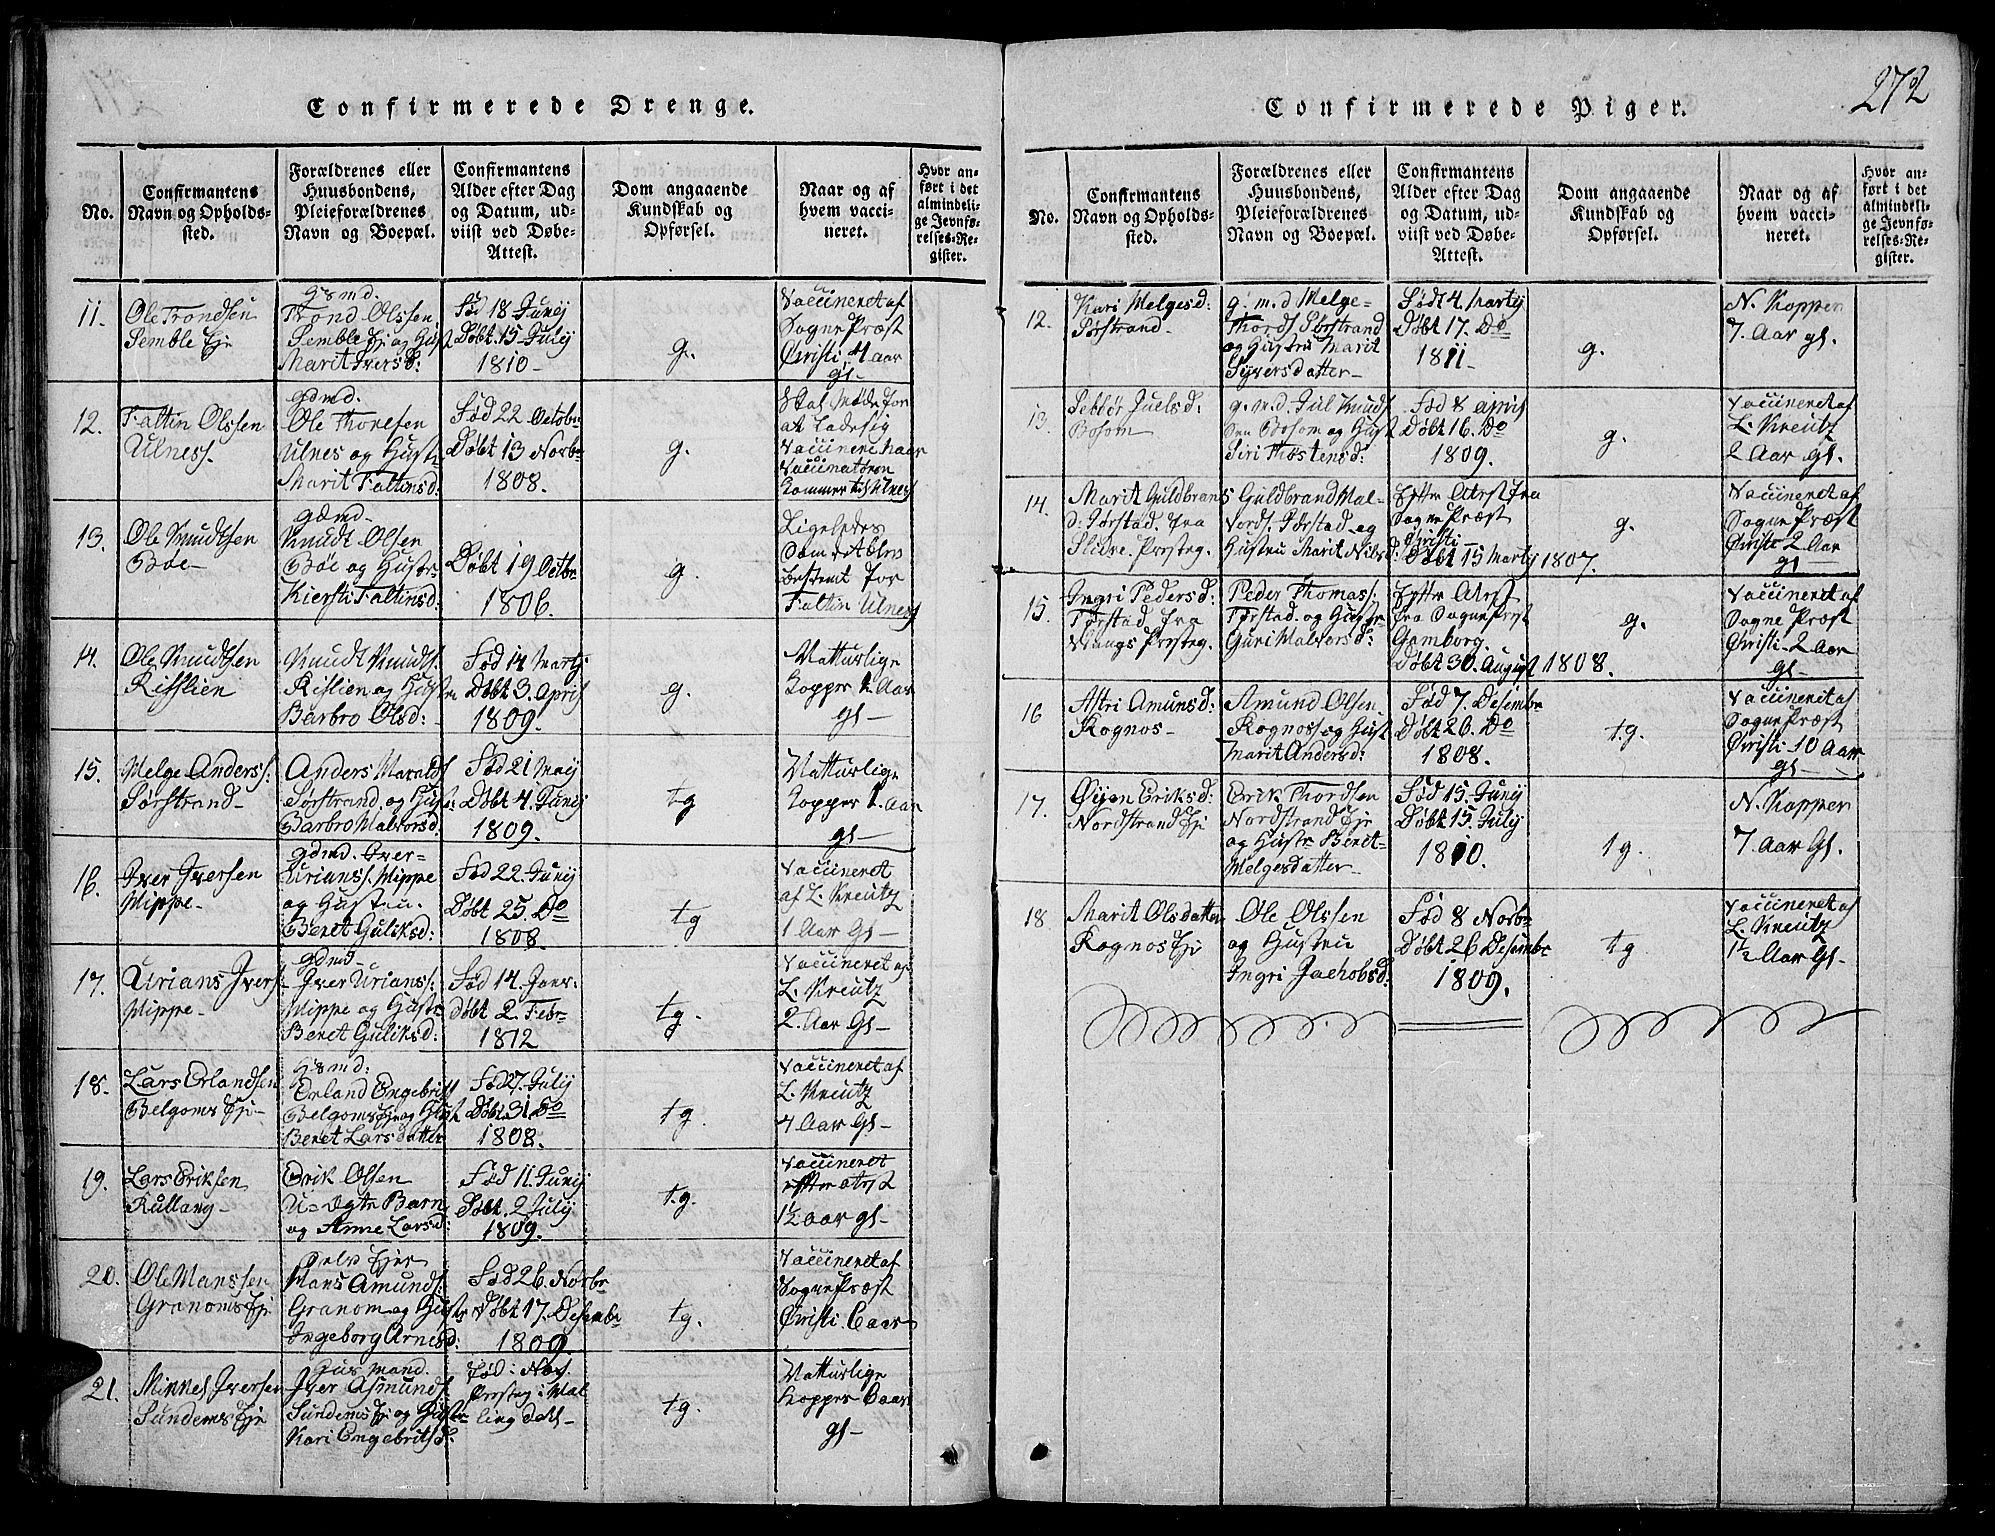 272
Confirmerede Drenge.
No.
Confirmantens
Navn og Opholds-
sted.
Forældrenes eller
Huusbondens,
Pleieforældrenes
Navn og Boepæl.
Confirmantens
Alder efter Dag
og Datum, ud-
viist ved Døbe-
Attest.
Dom angaaende
Kundskab og
Opførsel.
Naar og af
hvem vacci-
neret.
Hvor an-
ført i det
almindeli-
ge Jevnfø-
relses-Re-
gister.
11.
Ole Trondsen
Semble Eje
Trond Olssen
Semble Eje og Hust
Marit Iversd:
Fød 18 Junij
Døbt. 15 Julij
1810-
g.
Vaccineret af
Sogne Præst
Christi 4 aar
gl-
12.
Faltin Olssen
Ulness.
gdmd.
Ole Thoresen
Ulnes og Hust-
Marit Faltinsd:
Fød 22 Octobr
Døbt 13 Novbr
1808.
g.
Skal Møde for
at Lade sig
Vaccinere naar
Vaccinatøren
kommer til Ulness
13.
Ole Knudtsen
Bøe-
Knudt Olsen
Bøe og Hustr-
Kiersti Faltinsd:
Døbt 19 Octbr
1806.
g.
Ligeledes
som
bestemt for
Faltin Ulness
14.
Ole Knudtsen
Rislien
Knudt Knudts.
Rislien og Hust
Barbro Olsd:
Fød 14 Martj
Døbt 3. April
1809-
g.
Natturlige
Kopper 1. Aar
gl-
15.
Helge Anderss:
Sørstrand-
Anders Haralds
Sørstrand og Hust:
Barbro Halvorsd:
Fød 21 Maij
Døbt 4. Junij
1809.
tg
Natturlige
Kopper 1. Aar
gl-
16.
Iver Iversen
Hippe-
gdmd. Iver-
Urianss. Hippe
og Hustru.
Beret Guliksd:
Fød 22. Junij
Døbt 25. Do
1808.
tg
Vaccineret
af L. Kreutz
1 Aar Gl-
17.
Urians Ivers-
Hippe-
gdmd-
Iver Urianss:
Hippe og Hust
Beret Guliksd:
Fød 14. Janr.
Døbt 2. Febr
1812
tg.
Vaccineret af
L. Kreutz
2. Aar Gl-
18.
Lars Erlandsen
Belgoms Eje-
Erland Engebrits
Belgoms Eje og Hust
Beret Larsdatter
Fød 7. Julij
Døbt. 31. Do
1808.
tg.
Vaccineret af
L. Kreutz
4 Aar Gl-
19.
Lars Eriksen
Kullang-
Erik Olsen
U- Ægte Barn
og Anne Larsd:
Fød 11. Junij
Døbt. 2 Julij
1809.
t.g.
Vaccineret
efter atest
1½ aar gl-
20.
Ole Hanssen
Granoms Eje
Selv Ejer
Hans Amunds:
Granom og Hust
Ingeborg Arnesd:
Fød 26. Novbr
Døbt 17. Desembr
1809.
tg.
Vaccineret af
Sogne Præst
Christi 6 aar
21.
Iversen
Sundems Eje
Husmand.
Iver Asmunds.
Sundems Eje og Hustr
Kari Engebritsd:
Fød i
Præsteg: i Hal
ling dahl-
tg.
Natturlige
Kopper 6 aar
gl-
Confirmerede Piger.
No.
Confirmantens
Navn og Opholds-
sted.
Forældrenes eller
Huusbondens,
Pleieforældrenes
Navn og Boepæl.
Confirmantens
Alder efter Dag
og Datum, ud-
viist ved Døbe-
Attest.
Dom angaaende
Kundskab og
Opførsel.
Naar og af
hvem vacci-
neret.
Hvor an-
ført i det
almindeli-
ge Jevnfø-
relses-Re-
gister.
12.
Kari Helgesd:
Sørstrand-
g. m.d Helge-
Thords. Sørstrand
og Hustru Marit
Syversdatter-
Født 4. Martij
Døbt 17. Do
1811-
g.
N. Kopper
7. Aar gl.
13.
Juelsd:
Bosom
g. m.d Jul Knuds
sen Bosom og Hust
Siri Thostensd:
Fød 8 April
Døbt 16. Do
1809.
g.
Vaccineret af
L. Kreutz
2 Aar gl.
14.
Marit Guldbrans
d: Jørstad. fra
Slidre. Presteg.
Guldbrand Hal-
vords. Jørstad og
Hustru Marit Nilsd:
Efter Atest fra
Sogne Præst
Christi-
Døbt 15 Martj 1807.
g.
Vaccineret af
Sogne Præst
Christi 2 Aar
gl-
15.
Ingri Pedersd:
Førstad fra
Vangs Presteg.
Peder Thomass:
Førstad. og Hustr-
Guri Halvorsd:
Efter Atest
fra Sogne Prest
Gamborg.
Døbt 30. August 1808.
g.
Vaccineret af
Sogne Præst
Christi- 2 Aar
gl-
16
Astri Amunsd:
Rognos-
Amund Olsen
Rognos og Hust
Marit Andersd:
Fød 7. Desembr
Døbt 26. Do
1808.
tg.
Vaccineret af
Sogne Præst
Christi 10 Aar
gl-
17.
Øijen Eriksd:
Nordstrand Eje
Erik Thordsen
Nordstrand Eje
og Hustr Beret-
Helgesdatter-
Fød 15. Junij
Døbt 15. Julij
1810.
tg.
N. Kopper
7. Aar Gl.
18
Marit Olsdatter
Rognos Eje
Ole Olssen
og Hustru
Ingri Jachobsd:
Fød 8 Novbr
Døbt 26 Desembr
1809.
tg
Vaccineret af
L. Kreutz
1½ Aar Gl-